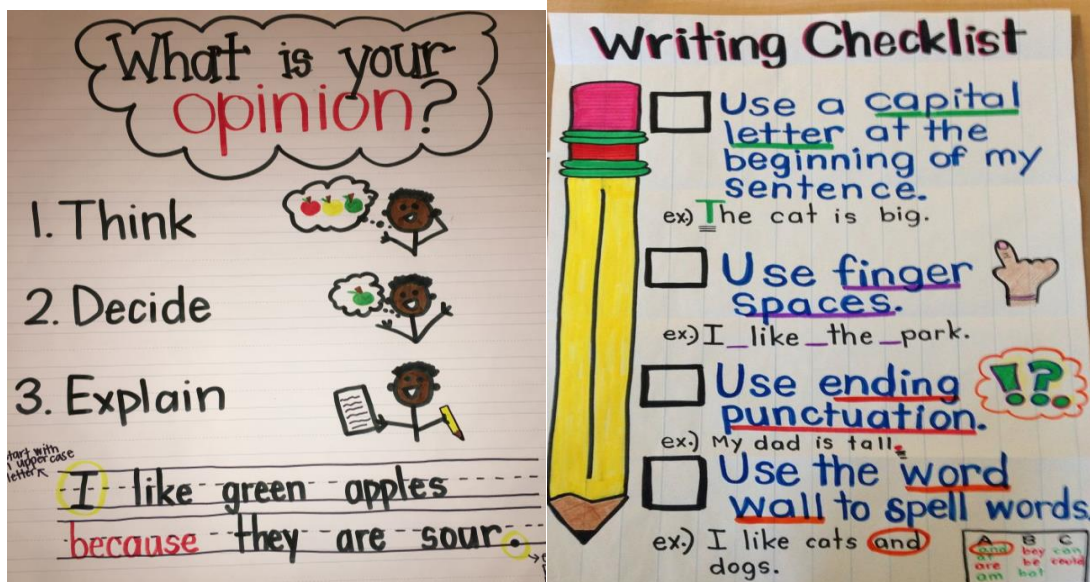 What is your
opinion?
1. Think
2. Decide
3. Explain
start with
uppercase
letter
I like green apples
because they are sour.
Writing Checklist
Use a capital
letter at the
beginning of my
sentence.
ex.) The cat is big.
Use finger
spaces.
ex.) I_like_the_park.
Use ending
punctuation.
!?.
ex.) My dad is tall.
Use the word
wall to spell words
ex.) I like cats and
dogs.
A B C
and boy can
are be could
am